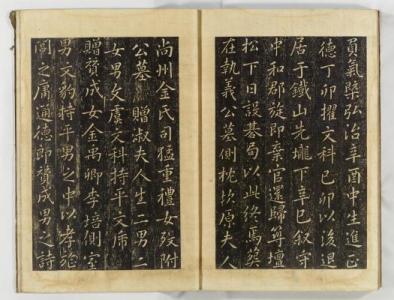 負氣槩弘治辛酉中生進正
德丁卯擢文科己卯以後退
居于鐵山先壠下辛巳敘守
中和郡旋即棄官還歸築壇
松下日設碁局以此終焉葬
在執義公墓側枕坎原夫人
尚州金氏司猛重禮女歿附
公墓 贈淑夫人生二男二
女男文虞文科持平文席
贈贊成女金禺卿李培側室
男文豹持平男之中以孝旌
閭之屛通德郎贊成男之詩